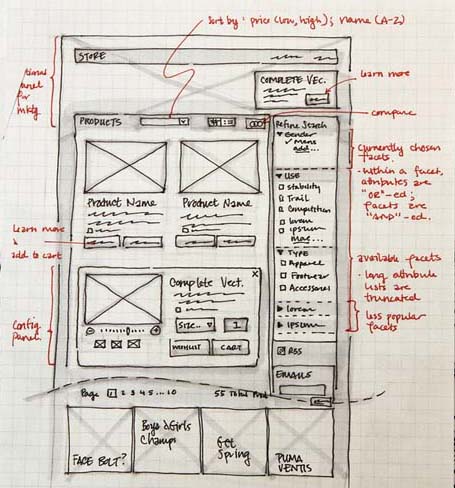 sort by: price (low, high); name (A-Z)
STORE
COMPLETE VEC.
learn more
for
mktg
PRODUCTS
compare
Refine Search
Gender
✓ Mens
add...
currently chosen
facets.
• within a facet,
attributes are
"OR"-ed;
facets are
"AND"-ed.
USE
Stability
Trail
Competition
lorem
ipsum
more...
Product Name
Product Name
learn more
&
add to cart
TYPE
Apparel
Footwear
Accessories
available facets
• long attribute
lists are
truncated
lorem
ipsum
less popular
facets
Config
Panel.
Complete Vect.
X
SIZE
1
WISHLIST
CART
RSS
EMAILS
Page 1 2 3 4 5 ... 10
55 Total Prod
FACE BOLT?
Boys & Girls
Champs
Get
Spring
PUMA
VENTIS